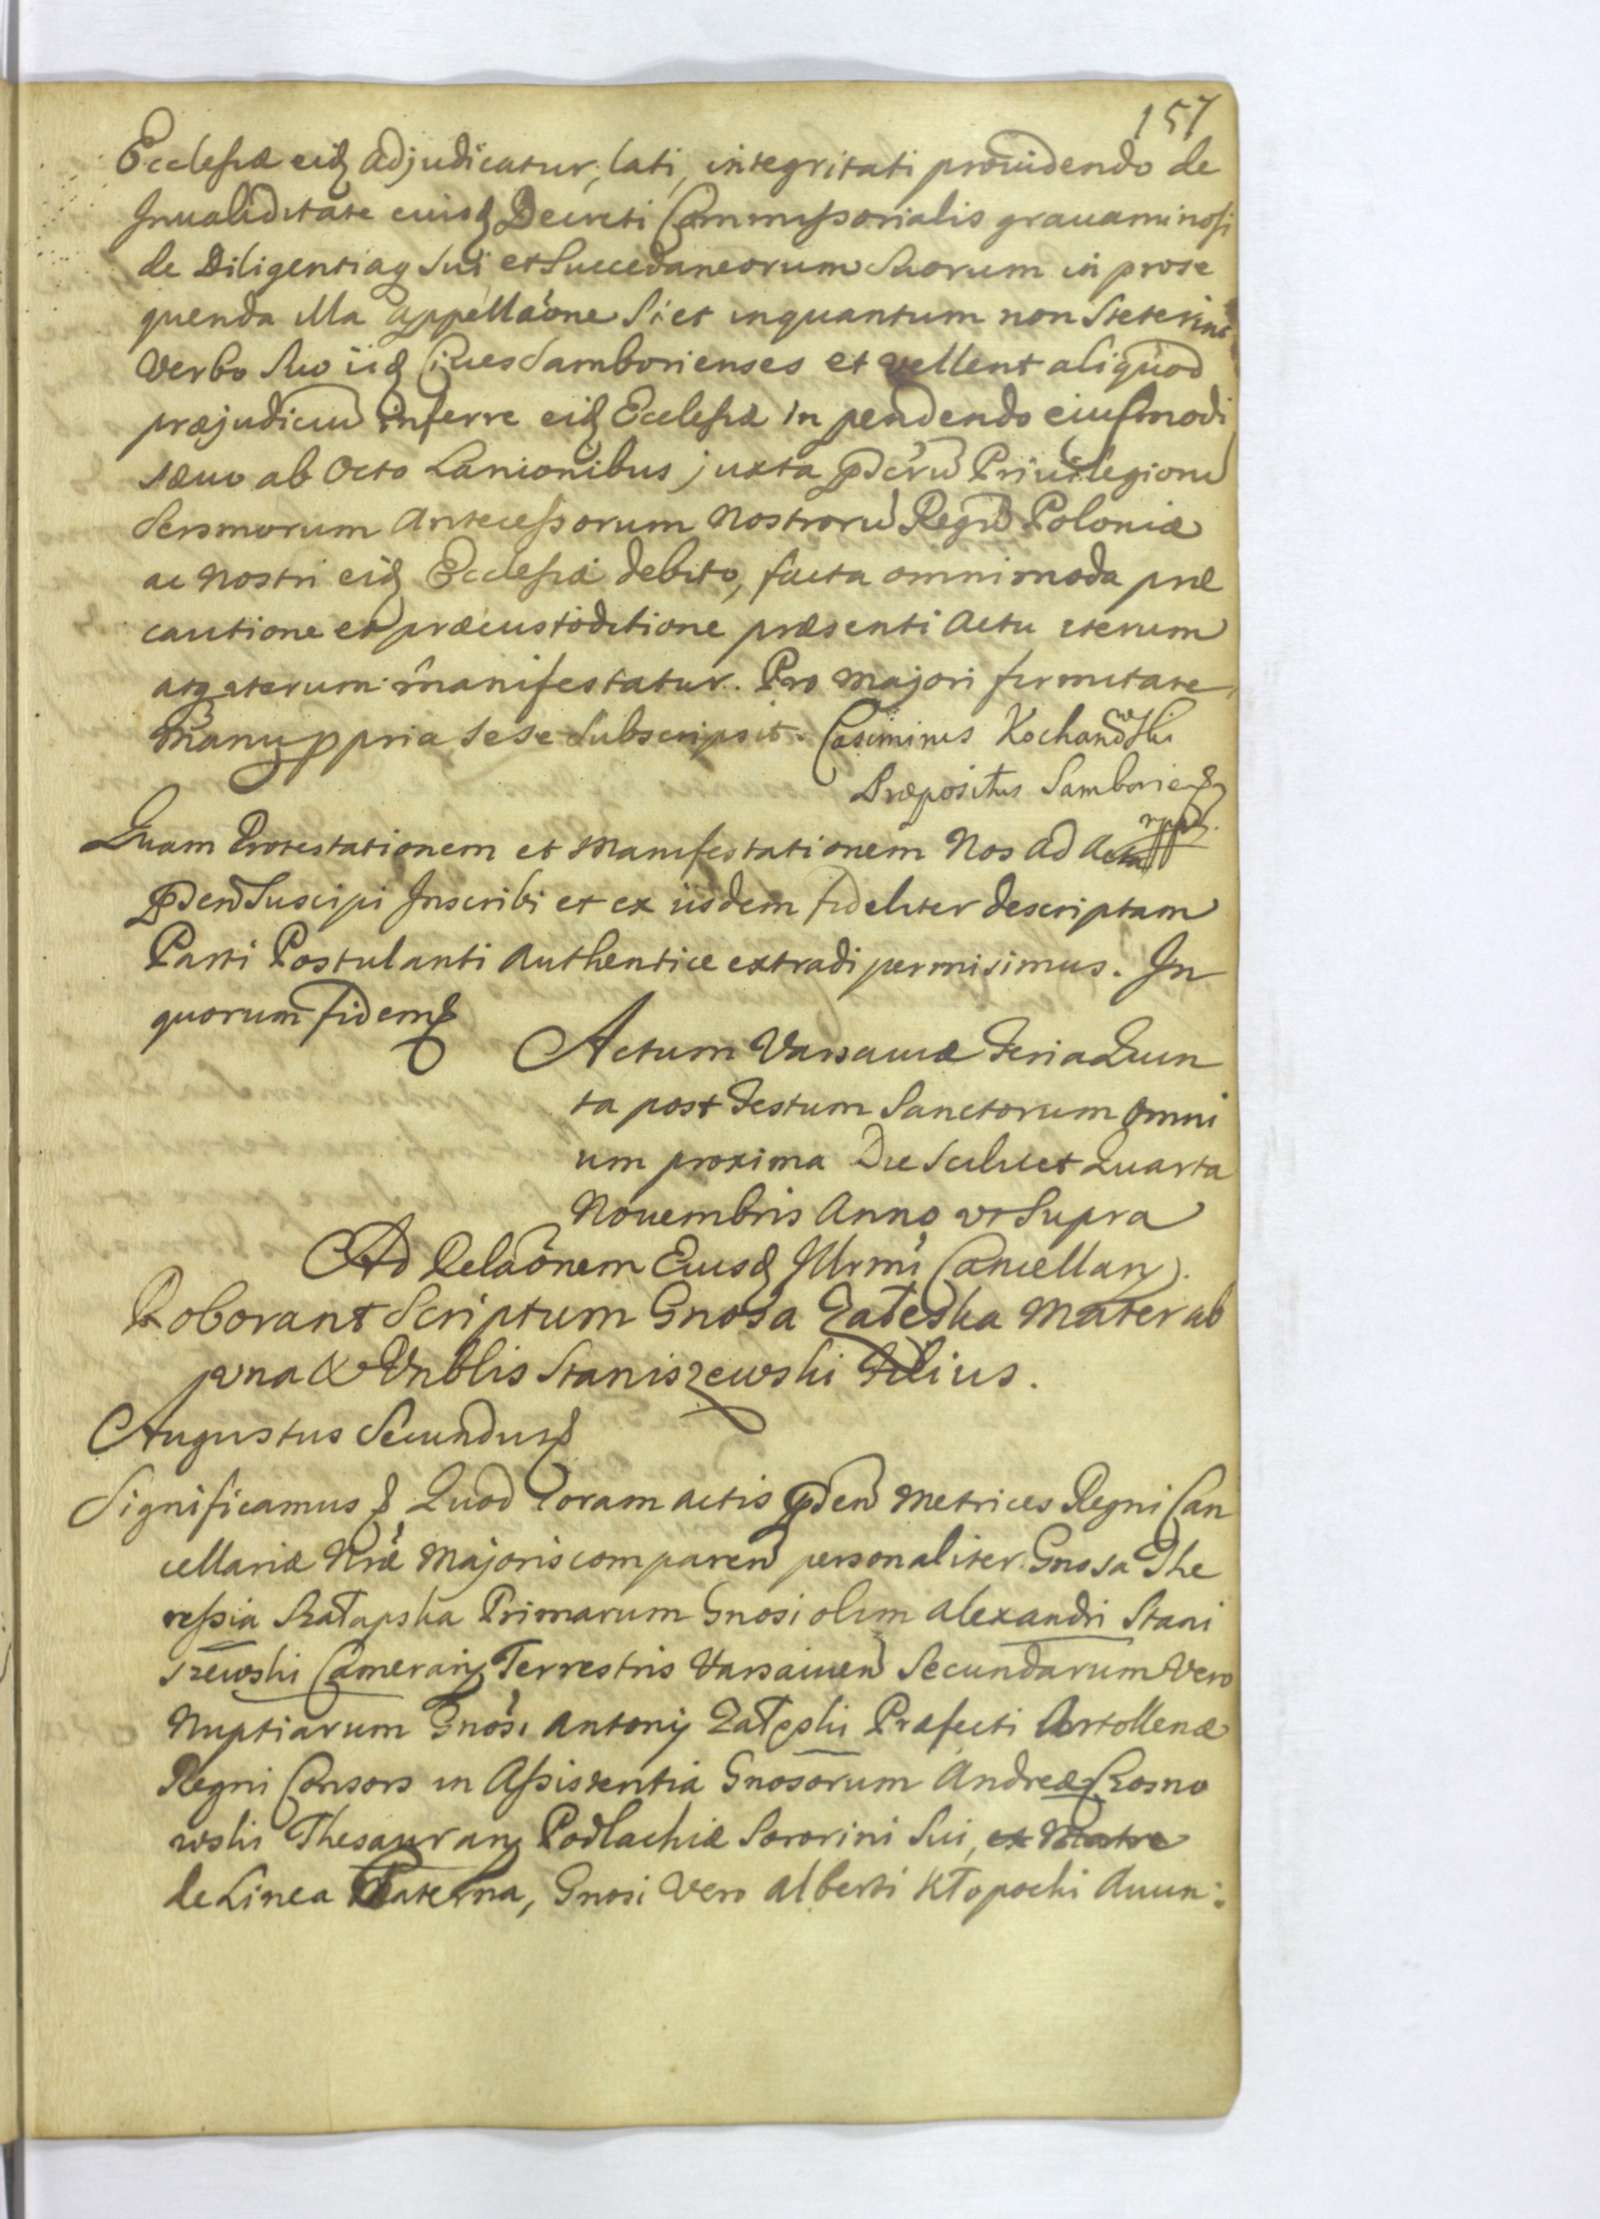 157
Ecclesiæ eidq adjudicatur, lati, integritati prouidendo de
Inualiditate eiusq Decreti Commissorialis grauaminosi
de Diligentiaq sui et Succedaneorum Suorum in prose
quenda illa Appellaõne si et inquantum non steterint
Verbo suo iidq Ciues Samborienses et vellent aliquod
præjudiciũ inferre eidq Ecclesiæ in pendendo eiusmodi
sæuo ab Octo Lanionibus juxta pdctũ Priuilegiorũ
Sersmorum Antecessorum Nostrorũ Regũ Poloniæ
ac Nostri eidq Ecclesiæ debito, facta omnimoda præ
cautione et præcustoditione præsenti Actu iterum
atq iterum manifestatur. Pro majori firmitate
Manu ppria sese subscripsit. Casimirus Kochanowski
Præpositus Samborien
mpp.
Quam Protestationem et Manifestationem Nos ad Acta
pden Suscipi Inscribi et ex iisdem fideliter descriptam
Parti Postulanti Authentice extradi permisimus. In
quorum fidem
Actum Varsauiæ Feria Quin
ta post Festum Sanctorum Omni
um proxima Die Scilicet Quarta
Nouembris Anno vt Supra
Ad Relaõnem Eiusq Illrmi Cancellarij.
Roborant Scriptum Gnosa Załeska Mater ab
vna & Vnblis Staniszewski Filius.
Augustus Secundus
Significamus Quod Coram actis pden Metrices Regni Can
cellariæ Nræ Majoris comparen personaliter Gnosa The
ressia Primarum Gnosi olim Alexandri Stani
szewski Camerarij Terrestris Varsauien Secundarum Vero
Nuptiarum Gnosi Antonij Załeski Præfecti Artolleriæ
Regni Consors in Assistentia Gnosorum Andreæ Krosno
wski Thesaurarij Podlachiæ Sororini Sui, ex Matre
de Linea Paterna, Gnosi Vero Alberti Kłopocki Auun: